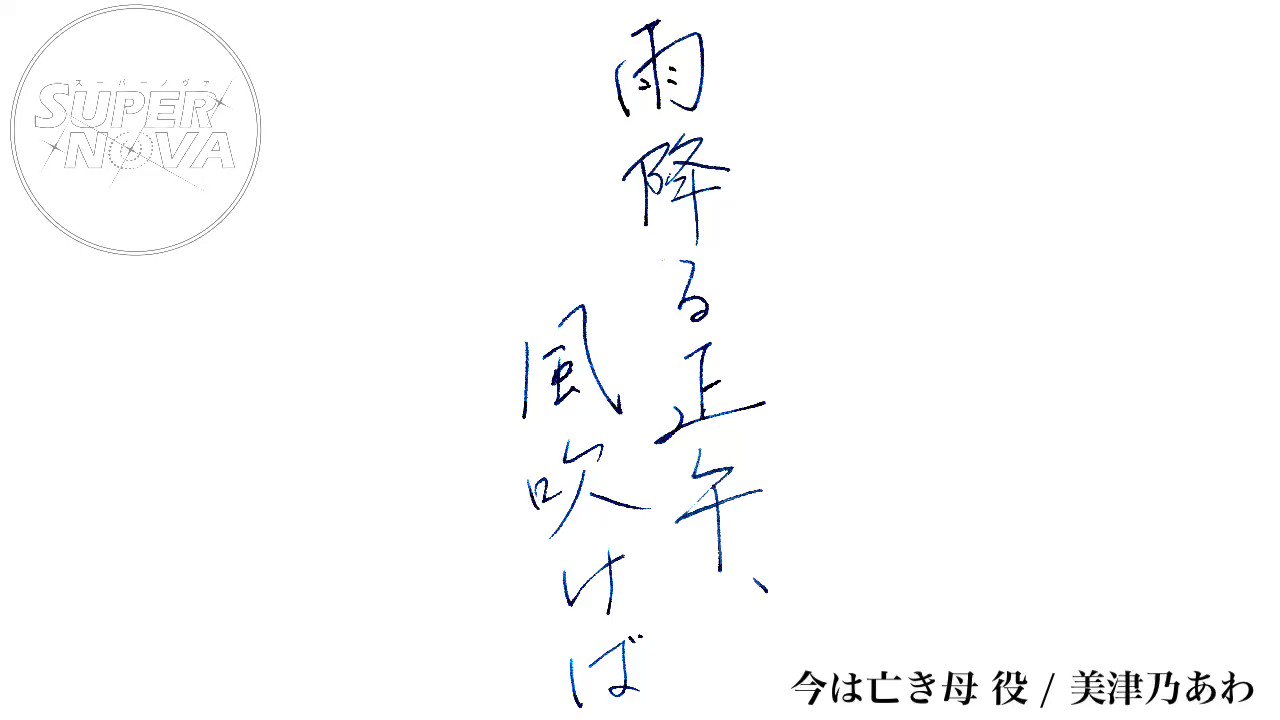 スーパーノヴァ
SUPER
NOVA
雨降る正午、
風吹けば
今は亡き母 役 / 美津乃あわ